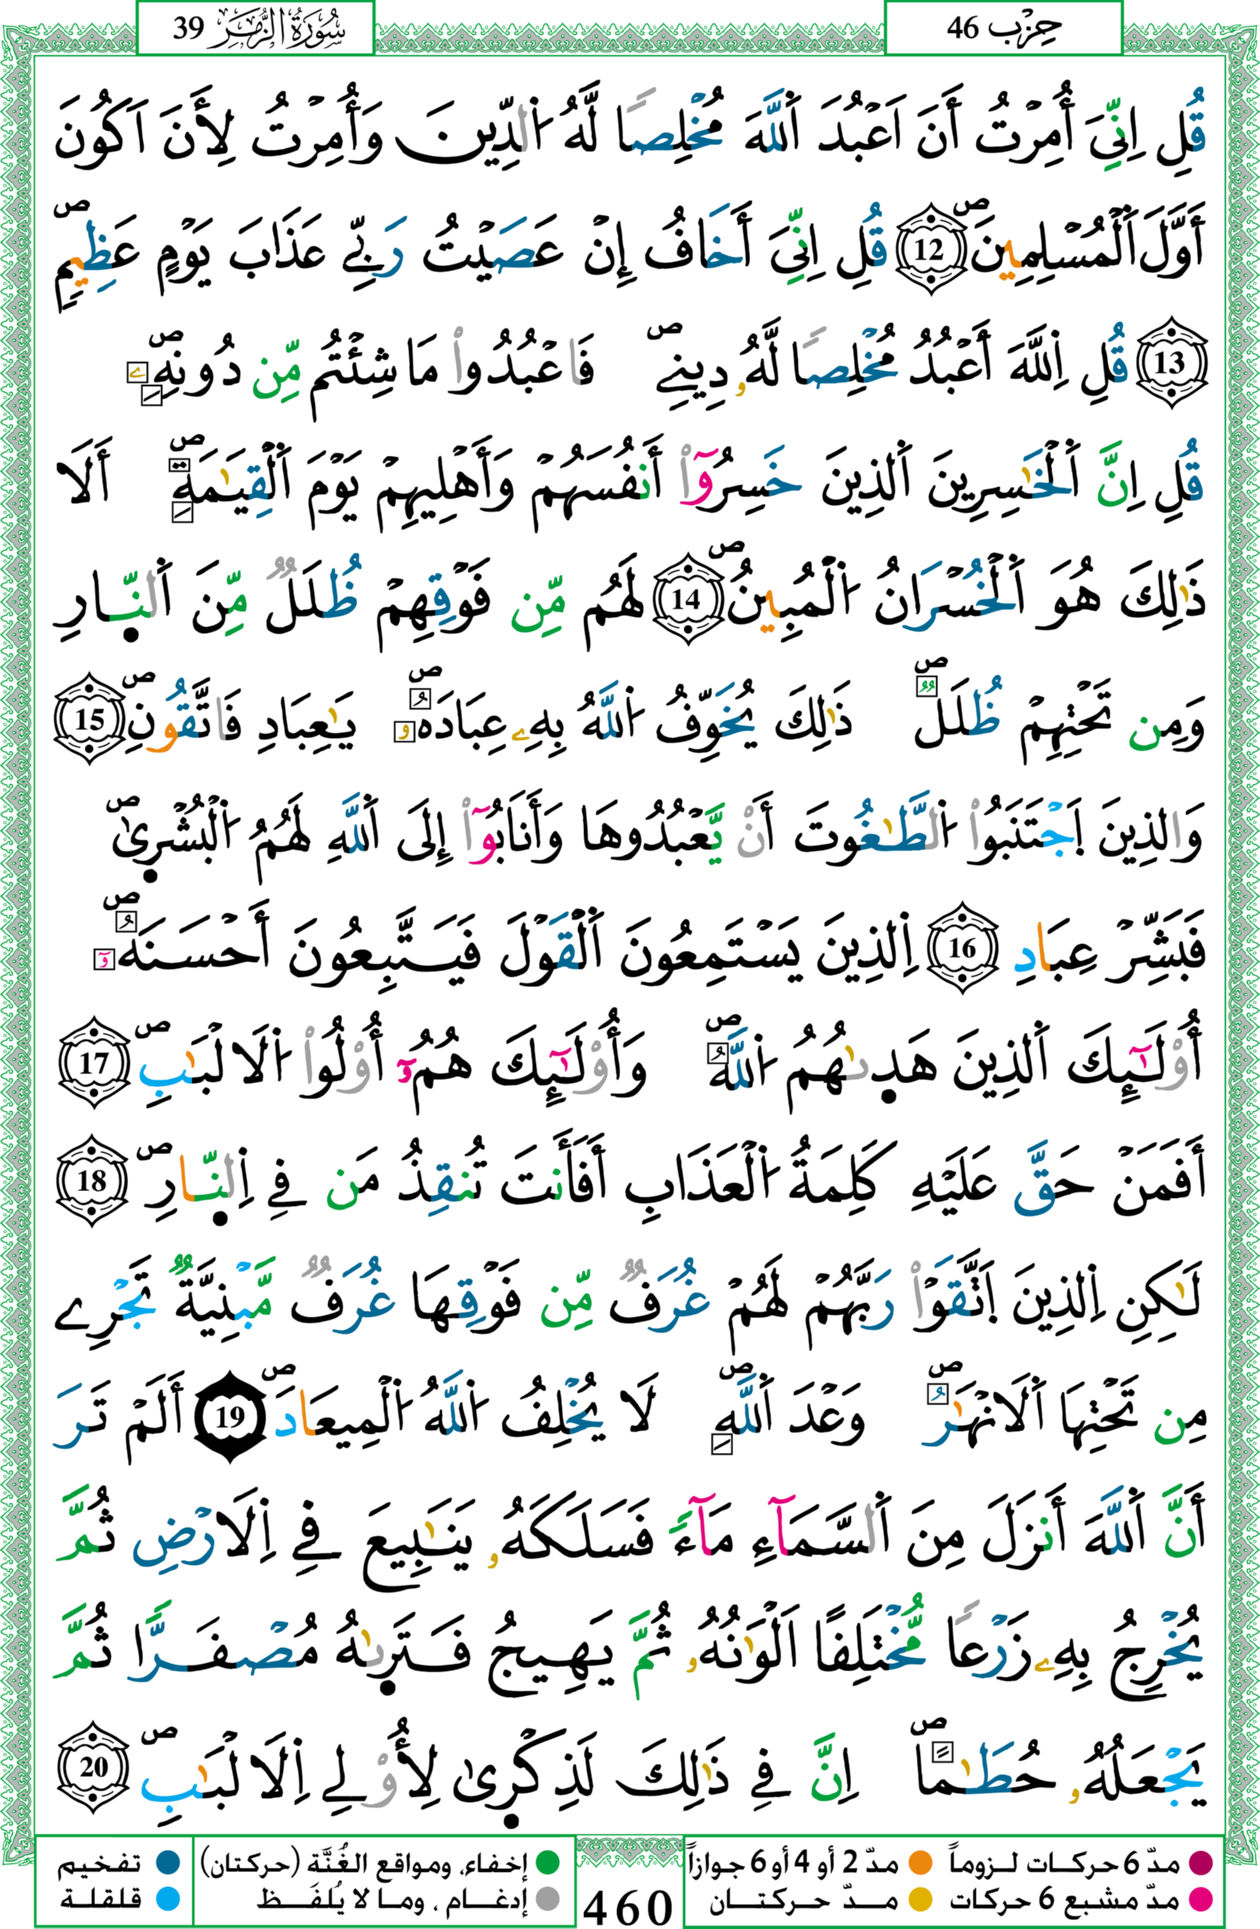 سُورَةُ الزُّمَرِ 39
حِزْب 46
قُلِ اِنِّيَ أُمِرْتُ أَنَ اَعْبُدَ اَ۬للَّهَ مُخْلِصاً لَّهُ اُ۬لدِّينَ وَأُمِرْتُ لِأَنَ اَكُونَ
أَوَّلَ اَ۬لْمُسْلِمِينَۖ 12 قُلِ اِنِّيَ أَخَافُ إِنْ عَصَيْتُ رَبِّے عَذَابَ يَوْمٍ عَظِيمٖۖ
13 قُلِ اِ۬للَّهَ أَعْبُدُ مُخْلِصاً لَّهُۥ دِينِےۖ فَاعْبُدُواْ مَا شِئْتُم مِّن دُونِهِۦۖ
قُلِ اِنَّ اَ۬لْخَٰسِرِينَ اَ۬لذِينَ خَسِرُوٓاْ أَنفُسَهُمْ وَأَهْلِيهِمْ يَوْمَ اَ۬لْقِيَٰمَةِۖ أَلَا
ذَٰلِكَ هُوَ اَ۬لْخُسْرَانُ اُ۬لْمُبِينُۖ 14 لَهُم مِّن فَوْقِهِمْ ظُلَلٞ مِّنَ اَ۬لنّ۪ارِ
وَمِن تَحْتِهِمْ ظُلَلٞۖ ذَٰلِكَ يُخَوِّفُ اُ۬للَّهُ بِهِۦ عِبَادَهُۥۖ يَٰعِبَادِ فَاتَّقُونِۖ 15
وَالذِينَ اَ۪جْتَنَبُواْ اُ۬لطَّٰغُوتَ أَنْ يَّعْبُدُوهَا وَأَنَابُوٓاْ إِلَى اَ۬للَّهِ لَهُمُ اُ۬لْبُشْر۪يٰۖ
فَبَشِّرْ عِبَادِ 16 اِ۬لذِينَ يَسْتَمِعُونَ اَ۬لْقَوْلَ فَيَتَّبِعُونَ أَحْسَنَهُۥٓۖ
أُوْلَٰٓئِكَ اَ۬لذِينَ هَد۪يٰهُمُ اُ۬للَّهُۖ وَأُوْلَٰٓئِكَ هُمُۥٓ أُوْلُواْ اُ۬لَالْبَٰبِۖ 17
أَفَمَنْ حَقَّ عَلَيْهِ كَلِمَةُ اُ۬لْعَذَابِ أَفَأَنتَ تُنقِذُ مَن فِے اِ۬لنّ۪ارِۖ 18
لَٰكِنِ اِ۬لذِينَ اَ۪تَّقَوْاْ رَبَّهُمْ لَهُمْ غُرَفٞ مِّن فَوْقِهَا غُرَفٞ مَّبْنِيَّةٞ تَجْرِے
مِن تَحْتِهَا اَ۬لَانْهَٰرُۖ وَعْدَ اَ۬للَّهِۖ لَا يُخْلِفُ اُ۬للَّهُ اُ۬لْمِيعَادَۖ 19 أَلَمْ تَرَ
أَنَّ اَ۬للَّهَ أَنزَلَ مِنَ اَ۬لسَّمَآءِ مَآءٗ فَسَلَكَهُۥ يَنَٰبِيعَ فِے اِ۬لَارْضِ ثُمَّ
يُخْرِجُ بِهِۦ زَرْعاً مُّخْتَلِفاً اَلْوَٰنُهُۥ ثُمَّ يَهِيجُ فَتَر۪يٰهُ مُصْفَرّاٗ ثُمَّ
يَجْعَلُهُۥ حُطَٰماًۖ اِنَّ فِے ذَٰلِكَ لَذِكْر۪يٰ لِأُوْلِے اِ۬لَالْبَٰبِۖ 20
مدّ 6 حركات لـزوماً مدّ 2 أو 4 أو 6 جوازاً
مدّ مشبع 6 حركات مــدّ حــركتــان
460
إخفاء، ومواقع الغُنَّة (حركتان) تفخيم
إدغــام ، ومـا لا يُلفَــظ قلقلة